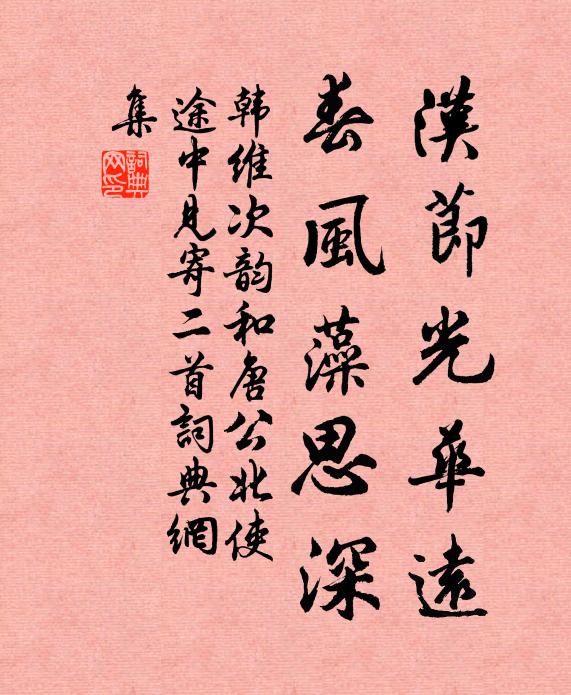 漢節光華遠
春風藻思深
韩維次韵和唐公北使
途中見寄二首詞典網
集
詞典网印